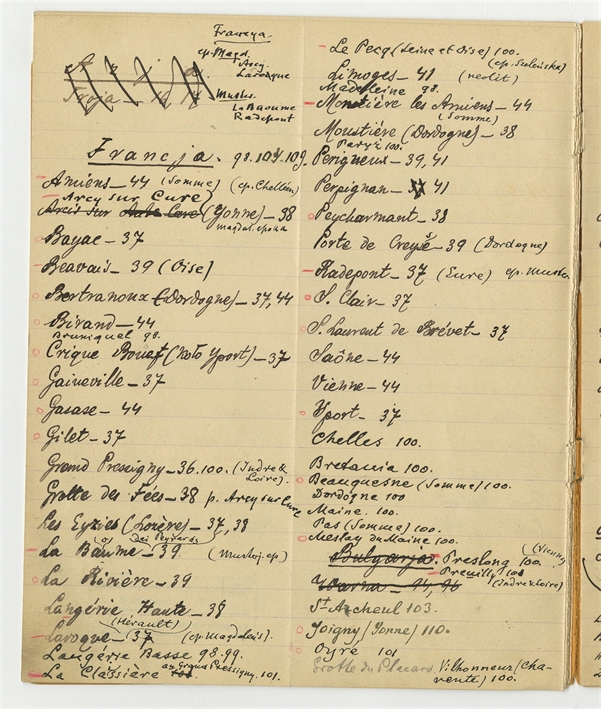 Francya.
ep. Magd.
Arcy.
Laroque
Mustier.
La Baume
Radepont
Troja
Francja. 98. 104. 109.
Amiens – 44 (Somme) (ep. Chelleen)
Arcy sur Cure
Arcis sur Aube Cure (Yonne) – 38
magdal. epoka
Bayac – 37
Beauvais – 39 (Oise)
Bertranoux (Dordogne) – 37, 44
Birand – 44
Bruniquel 98.
Crique Bouef (koło Yport) – 37
Gaineville – 37
Gasase – 44
Gilet – 37
Grand Pressigny – 36. 100. (Indre &
Loire).
Grotte des Fées – 38 p. Arcy sur Cure
Les Eyzies (Lozère) – 37, 38
La Baume – 39. (Mustierj. ep)
La Rivière – 39
Langérie Haute – 38
(Hérault)
Laroque – 37 (ep. magdaleń.)
Langérie Basse 98. 99.
La Claisière au Grand Pressigny. 101.
Le Pecq (Seine et Oise) 100.
(ep. Szeleńska)
Limoges – 41 (neolit)
Madeleine 98.
Monstière les Amiens – 44
(Somme)
Moustiére (Dordogne) – 38
Paryż 100.
Perigneux – 39, 41
Perpignan – 41
Peycharmant – 38
Porte de Creyse – 39 (Dordogne)
Radepont – 37 (Eure) ep. Muster
S. Clair – 37
S. Laurent de Brévet – 37
Saône – 44
Vienne – 44
Yport – 37
Chelles 100.
Bretania 100.
Beauquesne (Somme) 100.
Dordogne 100
Maine. 100.
Pas (Somme) 100.
Meslay du Maine 100.
(Vienne)
Bulgarja. Preslong 100.
Preuilly 101
Warna – 94, 96 (Indre & Loire)
St Acheul 103.
Joigny (Yonne) 110.
Oyré 101
Grotte du Placard Vilhonneur (Cha-
rente) 100.